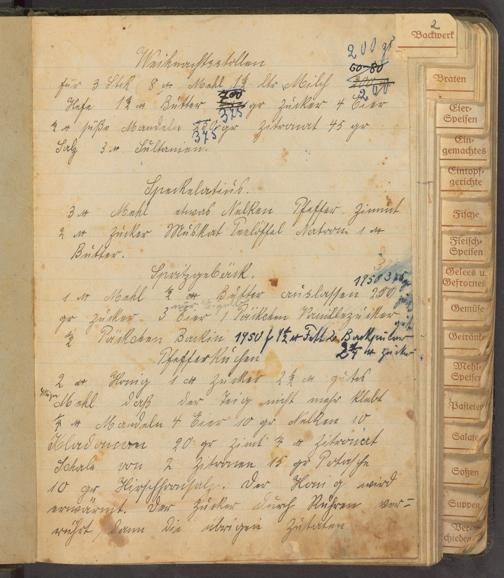 2
Backwerk
Braten
Eier-
Speisen
Ein-
gemachtes
Eintopf-
gerichte
Fische
Fleisch-
Speisen
Gelees u.
Gefrornes
Gemüse
Getränke
Mehl-
Speisen
Pasteten
Salate
Soßen
Suppen
Ver-
schieden
Weihnachtsstollen
200 gr
60-80
für 3 Stck 8 ℔ Mehl 1½ ltr Milch 200
Hefe 1½ ℔ Butter 375 gr Zucker 4 Eier
½ ℔ süße Mandeln 375 gr Zitronat 45 gr
Salz 3 ℔ Sultanien.
Speckelatius.
3 ℔ Mehl etwas Nelken Pfeffer Zimmt
2 ℔ Zucker Muskat Teelöffel Natron 1 ℔
Butter.
Spritzgebäck.
1950 375 gr
1 ℔ Mehl ½ ℔ Butter auslassen 250
gr Zucker. 3 Eier 1 Päckchen Vanillezucker
½ Päckchen Backin 1950 Fett Backpulver
℔ Zucker
Pfefferkuchen
2 ℔ Honig 1 ℔ Zucker 2½ ℔ gutes
Mehl daß der Teig nicht mehr klebt
℔ Mandeln 4 Eier 10 gr Nelken 10
Kladamom 20 gr Zimt ℔ Zitronat
Schale von 2 Zitronen 15 gr Potasche
10 gr Hirschhornsalz. Der Honig wird
erwärmt. Der Zucker durch Rühren ver-
rührt, dann die übrigen Zutaten